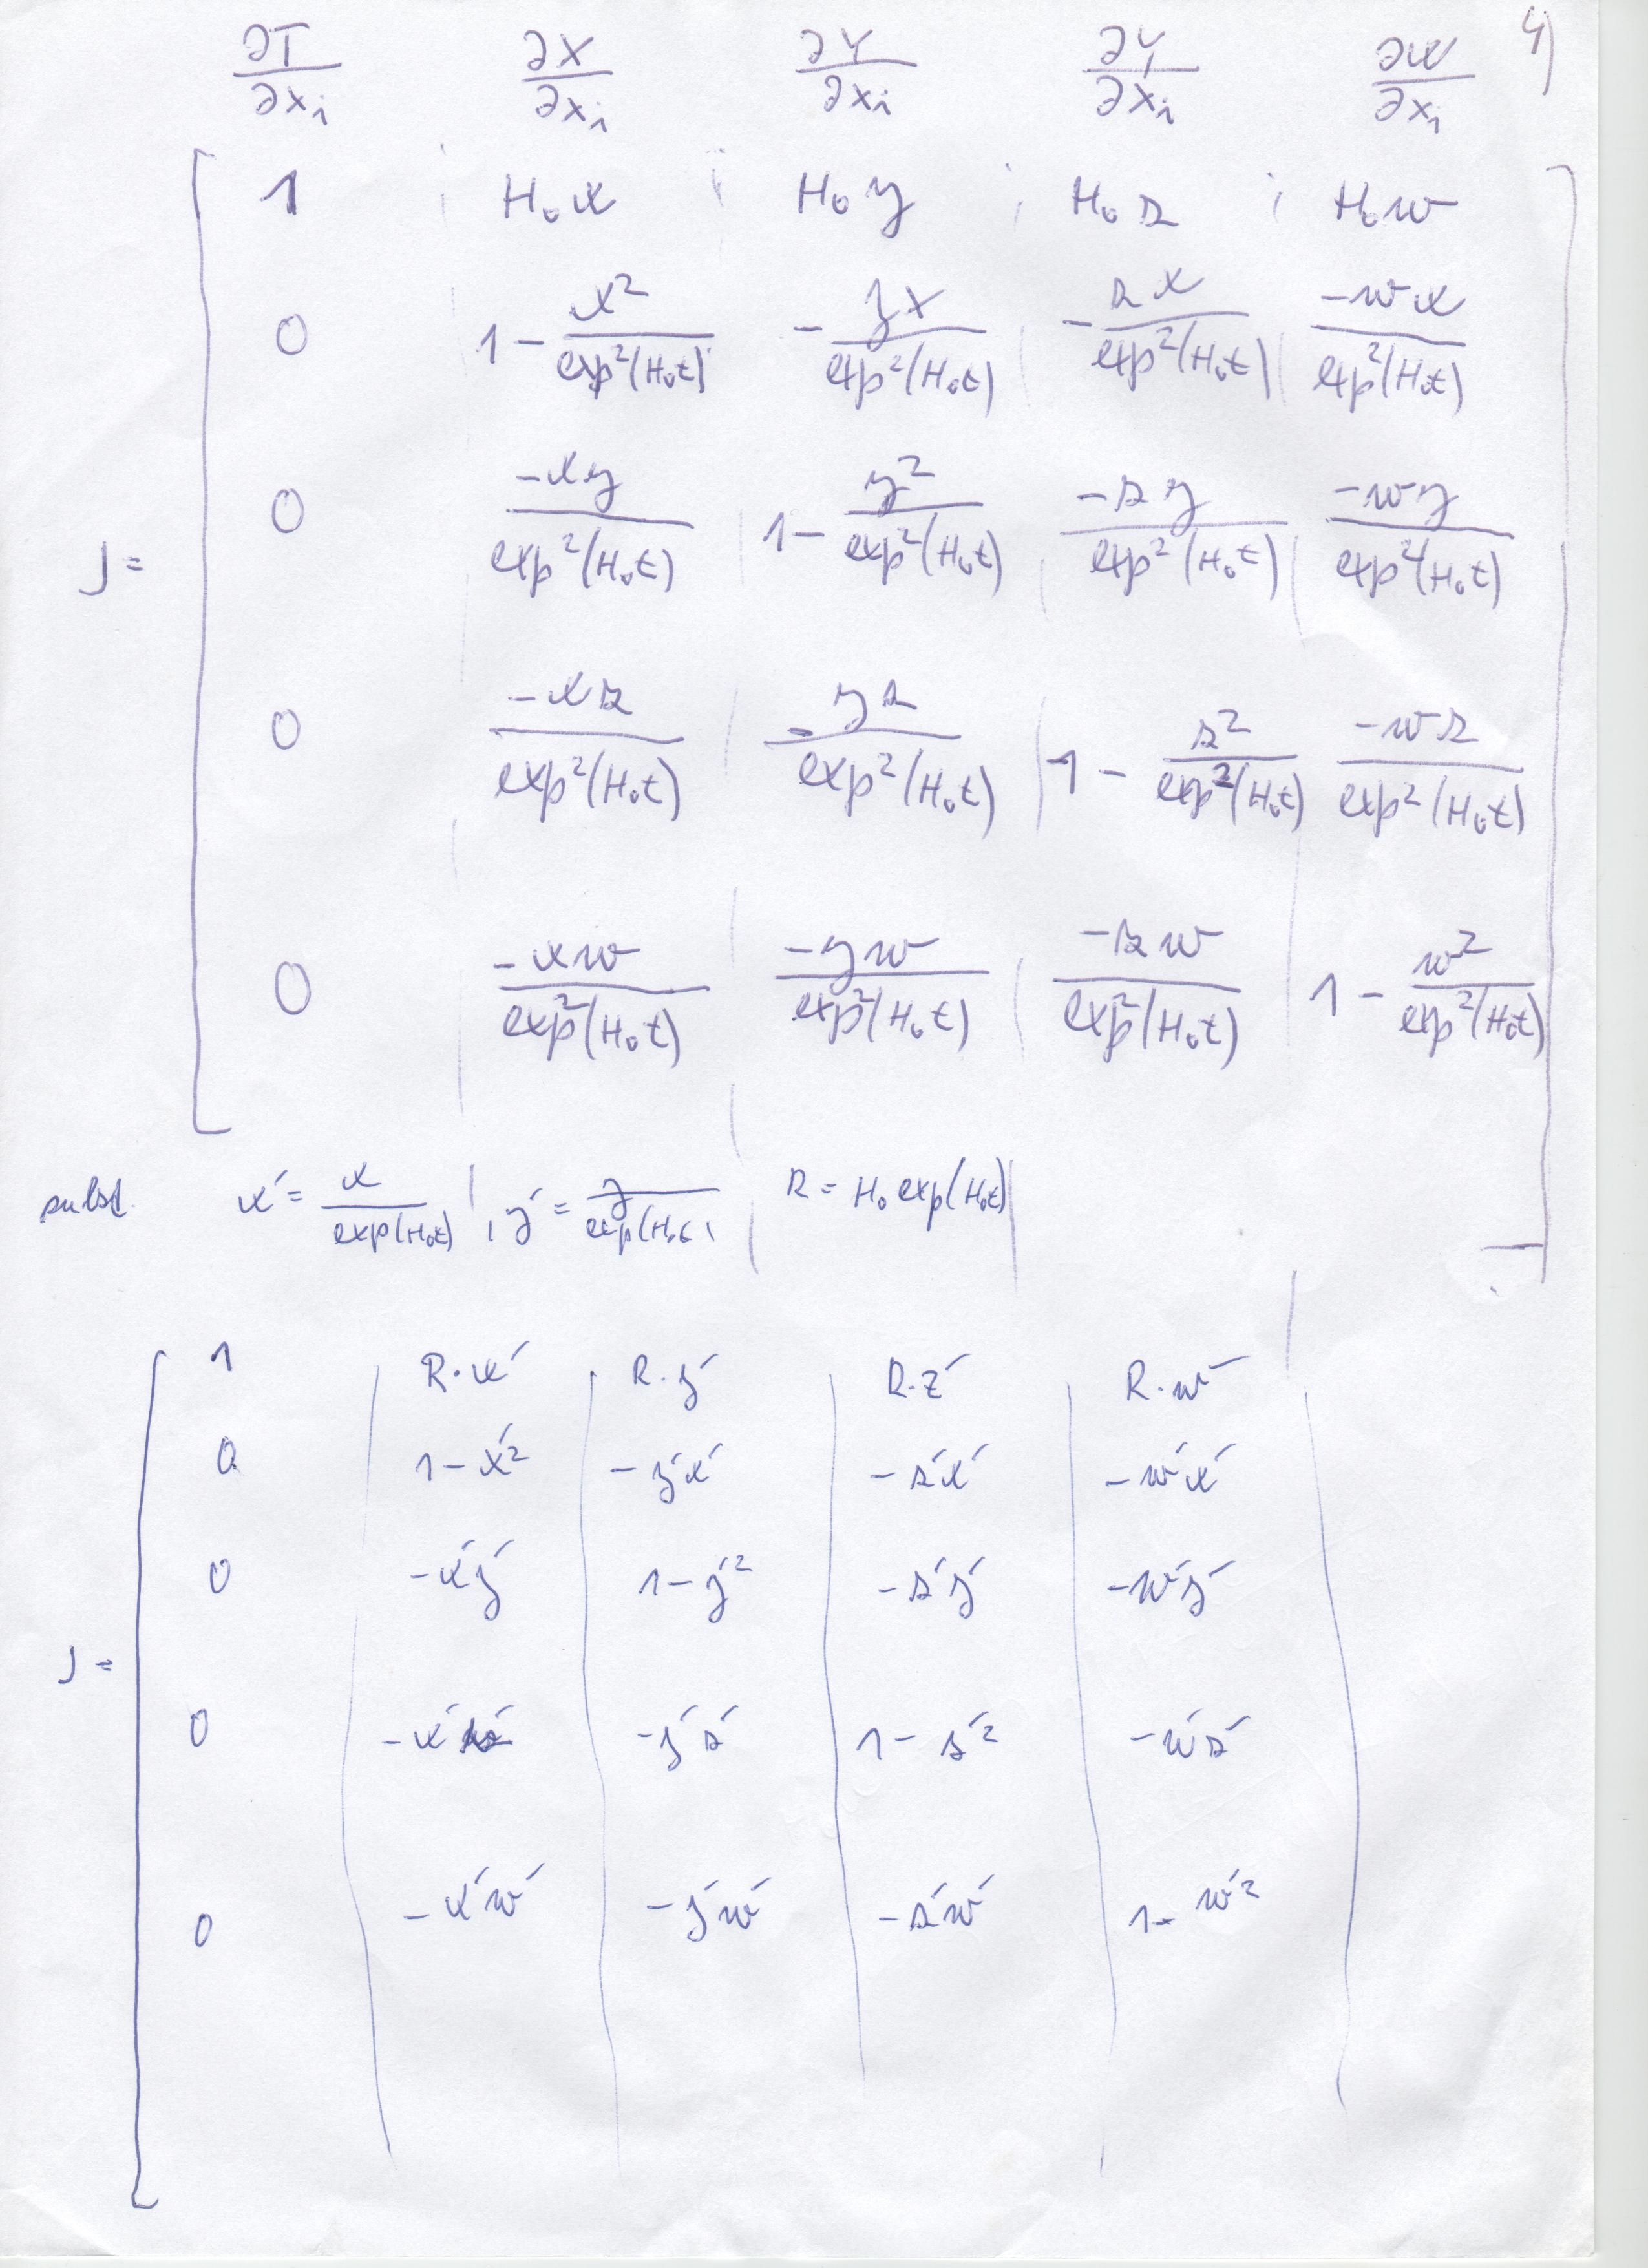 4)
∂T/∂x_i ∂X/∂x_i ∂Y/∂x_i ∂Y/∂x_i ∂W/∂x_i
1 H₀x H₀y H₀z H₀w
0 1 - x²/exp²(H₀t) - yx/exp²(H₀t) - zx/exp²(H₀t) -wx/exp²(H₀t)
J = 0 -xy/exp²(H₀t) 1 - y²/exp²(H₀t) -zy/exp²(H₀t) -wy/exp²(H₀t)
0 -xz/exp²(H₀t) - yz/exp²(H₀t) 1 - z²/exp²(H₀t) -wz/exp²(H₀t)
0 -xw/exp²(H₀t) -yw/exp²(H₀t) -zw/exp²(H₀t) 1 - w²/exp²(H₀t)
subst. x´ = x/exp(H₀t) , y´ = y/exp(H₀t) R = H₀ exp(H₀t)
1 R·x´ R·y´ R·z´ R·w´
0 1 - x´² - y´x´ - z´x´ - w´x´
0 -x´y´ 1 - y´² - z´y´ -w´y´
J =
0 - x´z´ -y´z´ 1 - z´² -w´z´
0 - x´w´ - y´w´ - z´w´ 1 - w´²